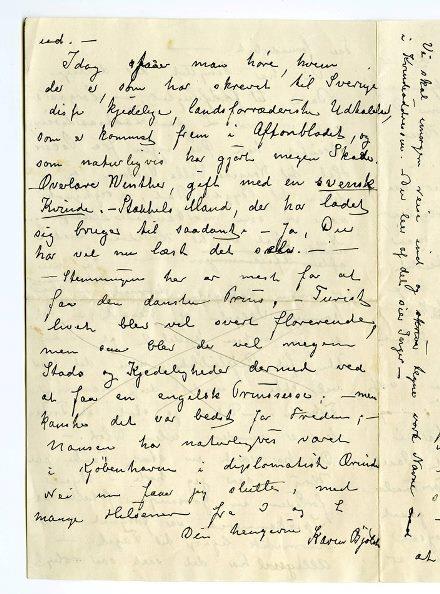 ud. —
Idag faar man høre, hvem
der er, som har skrevet til Sverige
disse kjedelige, landsforræderiske Udtalelser,
som er kommet frem i Aftonbladet, og
som naturligvis har gjort megen Skade.
Overlærer Winther, gift med en svensk
Kvinde. – Stakkels Mand, der har ladet
sig bruge til saadant. – Ja, Du
har vel nu læst det selv. – –
– Stemningen her er mest for at
faa den danske Prins, – Turist
livet blev vel svært florerende,
men saa blev der vel megen
Stads og Kjedeligheder dermed ved
at faa en engelsk Prinsesse. – men
kanske det var bedst for Freden; –
Nansen har naturligvis været
i Kjøbenhavn i diplomatisk Ærinde
Nei nu faar jeg slutte, med
mange Hilsener fra I og E
Din hengivne
Karen
Vi skal imorgen reise ind og tegne vore Navne
i Du ler af det, sier Inger –
at